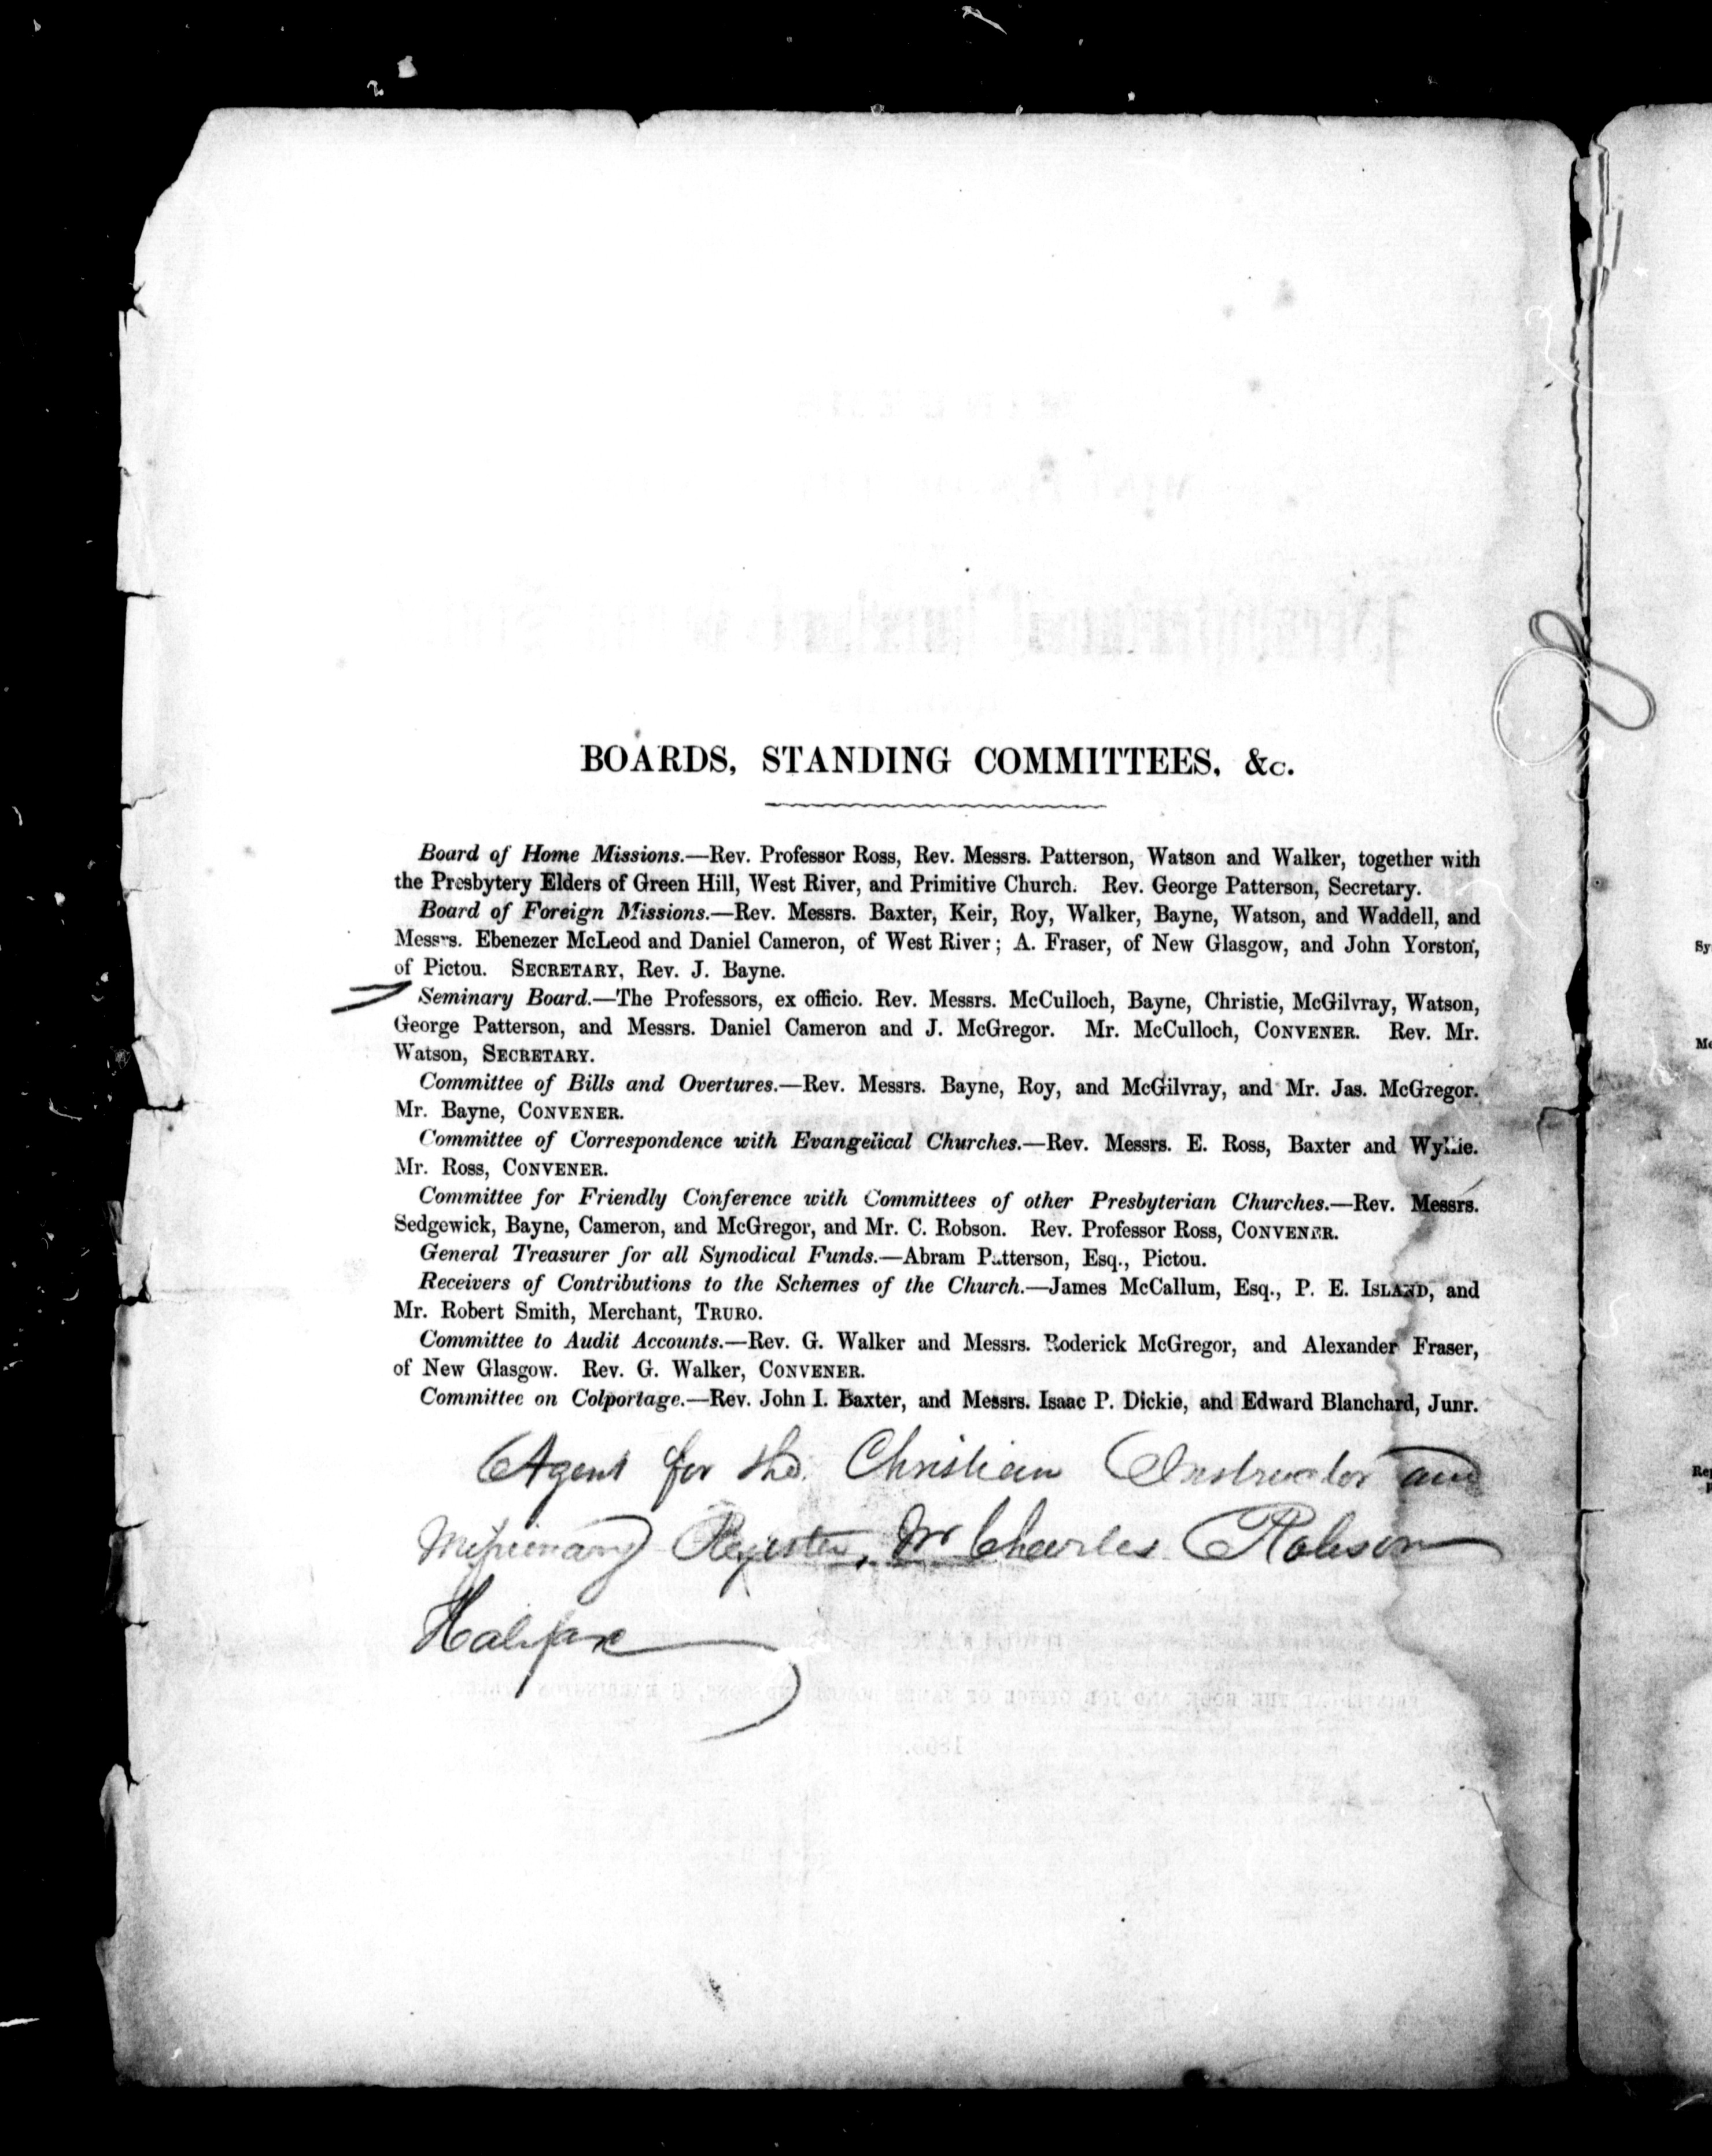 BOARDS, STANDING COMMITTEES, &c.
Board of Home Missions.—Rev. Professor Ross, Rev. Messrs. Patterson, Watson and Walker, together with
the Presbytery Elders of Green Hill, West River, and Primitive Church. Rev. George Patterson, Secretary.
Board of Foreign Missions.—Rev. Messrs. Baxter, Keir, Roy, Walker, Bayne, Watson, and Waddell, and
Messrs. Ebenezer McLeod and Daniel Cameron, of West River; A. Fraser, of New Glasgow, and John Yorston,
of Pictou. SECRETARY, Rev. J. Bayne.
Seminary Board.—The Professors, ex officio. Rev. Messrs. McCulloch, Bayne, Christie, McGilvray, Watson,
George Patterson, and Messrs. Daniel Cameron and J. McGregor. Mr. McCulloch, CONVENER. Rev. Mr.
Watson, SECRETARY.
Committee of Bills and Overtures.—Rev. Messrs. Bayne, Roy, and McGilvray, and Mr. Jas. McGregor.
Mr. Bayne, CONVENER.
Committee of Correspondence with Evangelical Churches.—Rev. Messrs. E. Ross, Baxter and Wyllie.
Mr. Ross, CONVENER.
Committee for Friendly Conference with Committees of other Presbyterian Churches.—Rev. Messrs.
Sedgewick, Bayne, Cameron, and McGregor, and Mr. C. Robson. Rev. Professor Ross, CONVENER.
General Treasurer for all Synodical Funds.—Abram Patterson, Esq., Pictou.
Receivers of Contributions to the Schemes of the Church.—James McCallum, Esq., P. E. ISLAND, and
Mr. Robert Smith, Merchant, TRURO.
Committee to Audit Accounts.—Rev. G. Walker and Messrs. Roderick McGregor, and Alexander Fraser,
of New Glasgow. Rev. G. Walker, CONVENER.
Committee on Colportage.—Rev. John I. Baxter, and Messrs. Isaac P. Dickie, and Edward Blanchard, Junr.
Agent for the Christian Instructor and
Missionary Register, Mr Charles Robson
Halifax